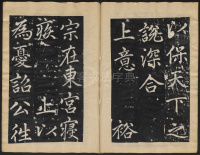 以保天下之
說深合
上意 裕
宗在東宮寢
疾 上以
為憂詔公往